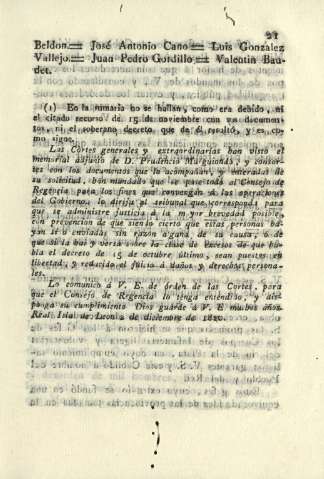 21
Beldon.= José Antonio Cano.= Luis Gonzalez
Vallejo.= Juan Pedro Gordillo.= Valentin Bau-
det.
(1) En la sumaria no se hallan, como era debido, ni
el citado recurso de 15 de noviembre con sus documen-
tos, ni el soberano decreto que de él resultó, y es co-
mo sigue.
Las Córtes generales y extraordinarias han visto el
memorial adjunto de D. Prudencio Murguiondo, y consor-
tes con los documentos que lo acompañan, y enteradas de
su solicitud, han mandado que se pase todo al Consejo de
Regencia para los fines que convengan á las operaciones
del Gobierno, lo dirija al tribunal que corresponda para
que se administre justicia á la mayor brevedad posible,
con prevencion de que siendo cierto que estas personas ha-
yan si o enviadas sin razon alguna de su causa, ó de
que si la hai y versa sobre la clase de excesos de que ha-
bla el decreto de 15 de octubre último, sean puestas en
libertad, y reducido el juicio á daños y derechos persona-
les.
Lo comunico á V. E. de órden de las Cortes, para
que el Consejo de Regencia lo tenga entendido, y dis-
ponga su cumplimiento Dios guarde á V. E muchos años
Real Isla de Leon 2 de diciembre de 1810.